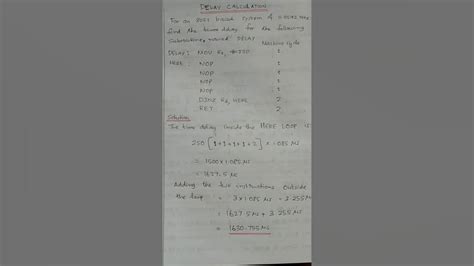 DELAY CALCULATION:
For an 8051 based system of 11.0592 MHz,
find the time delay for the following
subroutine, named DELAY
Machine cycle
DELAY: MOV R2, #250 1
HERE: NOP 1
NOP 1
NOP 1
NOP 1
DJNZ R2, HERE 2
RET 2
Solution
The time delay inside the HERE LOOP is
250 [1+1+1+1+2] × 1.085 μs
= 1500 × 1.085 μs
= 1627.5 μs
Adding the two instructions outside
the loop = 3 × 1.085 μs = 3.255 μs
= 1627.5 μs + 3.255 μs
= 1630.755 μs